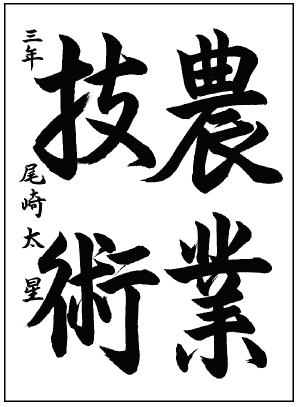 農業
技術
三年 尾崎太星